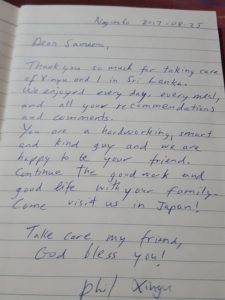 Negombo 2017-08-25
Dear Sameera,
Thank you so much for taking care
of Xinyu and I in Sri Lanka.
We enjoyed every day, every meal,
and all your recommendations
and comments.
You are a hardworking, smart
and kind guy and we are
happy to be your friend.
Continue the good work and
good life with your family.
Come visit us in Japan!
Take care my friend,
God bless you!
phil Xinyu